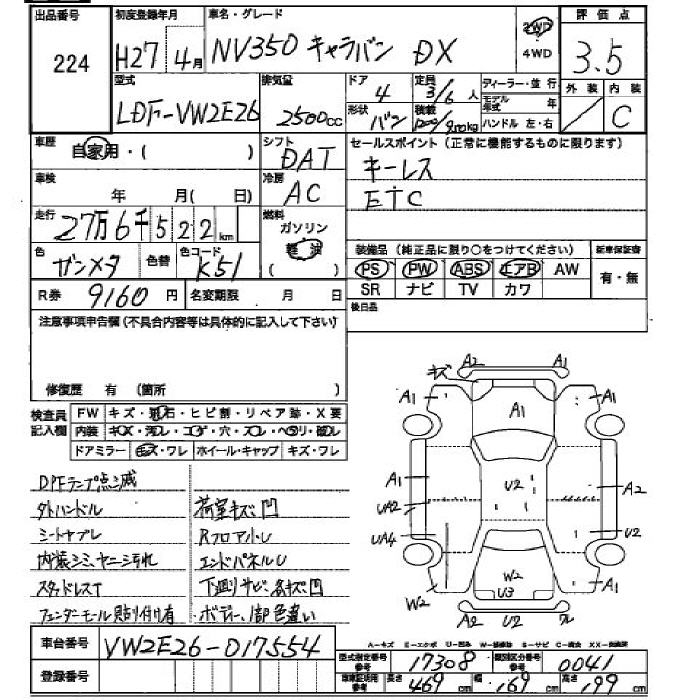 出品番号 初度登録年月 車名・グレード 評価点
224 H27 4月 NV350 キャラバン DX 2WD 4WD 3.5
型式 排気量 ドア 定員 ディーラー・並行 外装 内装
LDF-VW2E26 2500cc 4 3/6人 モデル年式 年
形状 積載 ハンドル 左・右 C
バン
車歴 シフト セールスポイント(正常に機能するものに限ります)
自家用・( ) DAT キーレス
車検 冷房
年 月(日) AC ETC
走行 燃料
27万6千522km ガソリン 軽油 ( )
色 色替 色コード 装備品(純正品に限り○をつけてください) 新車保証書
ガンメタ K51 PS PW ABS エアB AW 有・無
R券 9160円 名変期限 月 日 SR ナビ TV カワ
後日品
注意事項申告欄(不具合内容等は具体的に記入して下さい)
修復歴 有 (箇所 )
検査員記入欄 FW キズ・飛石・ヒビ割・リペア跡・X要
内装 キズ・汚レ・コゲ・穴・スレ・ヘタリ・破レ
ドアミラー キズ・ワレ ホイール・キャップ キズ・ワレ
DPFランプ点滅
外ハンドル 荷室キズ凹
シートヤブレ Rフロア小U
内装シミ、ヤニ、汚れ エンドパネルU
スタッドレスT 下廻りサビ、キズ凹
フェンダーモール貼り付け有 ボデー1部色違い
キズ A2 A1
A1 A1 A1
A1 U2 A2
UA2
UA4 U2
W2 A1
W2 U3
A2 U2 ワレ
A-キズ E-エクボ U-凹み W-補修跡 S-サビ C-腐食 XX-交換済
車台番号 VW2E26-017554
登録番号
型式指定番号 参考 17308 類別区分番号 参考 0041
車検証記載 参考 長さ 469cm 幅 169cm 高さ 199cm